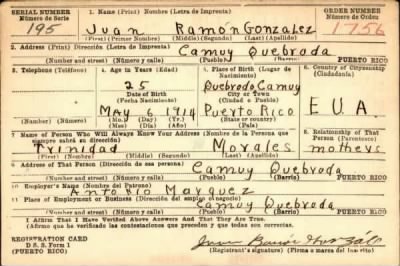 SERIAL NUMBER 1. Name (Print) Nombre (Letra de Imprenta) ORDER NUMBER
Número de Serie Número de Orden
195 Juan Ramón Gonzalez 1756
(First) (Primer Nombre) (Middle) (Segundo) (Last) (Apellido)
2. Address (Print) Dirección (Letra de Imprenta)
Camuy Quebrada
(Number and street) (Número y calle) (Pueblo) (Barrio) PUERTO RICO
3. Telephone (Teléfono) 4. Age in Years (Edad) 5. Place of Birth (Lugar de Nacimiento) 6. Country of Citizenship (Ciudadanía)
25 Quebrada Camuy
Date of Birth City or Town
(Fecha Nacimiento) (Ciudad o Pueblo)
MAY 6 1914 Puerto Rico E U A.
(Mo.) (Day) (Yr.) (State or country)
(Mes) (Día) (Año) (Estado o país)
7. Name of Person Who Will Always Know Your Address (Nombre de la Persona que siempre sabrá su dirección) 8. Relationship of That Person (Parentesco)
Trinidad Morales mothers
(First) (Nombre) (Middle) (Segundo) (Last) (Apellido)
9. Address of That Person (Dirección de esa persona)
Camuy Quebrada
(Number and street) (Número y calle) (Pueblo) (Barrio) PUERTO RICO
10. Employer's Name (Nombre del Patrono)
Antonio Marquez
11. Place of Employment or Business (Dirección del empleo o negocio)
Camuy Quebrada
(Number and street) (Número y calle) (Pueblo) (Barrio) PUERTO RICO
I Affirm That I Have Verified Above Answers And That They Are True.
Afirmo que he verificado las contestaciones que preceden y que todas son correctas.
REGISTRATION CARD
D S S. Form 1
(PUERTO RICO) (Registrant's signature) (Firma o marca del Inscrito)